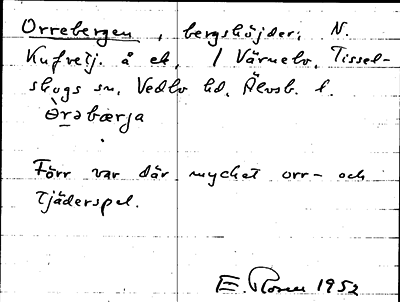 Orrebergen, bergshöjder, N.
Kufvetj. å ek. / Värnebo, Tissel-
skogs sn, Vedbo hd, Älvsb. l.
Òrəbærja
Förr var där mycket orr- och
tjäderspel.
E. Rosen 1952